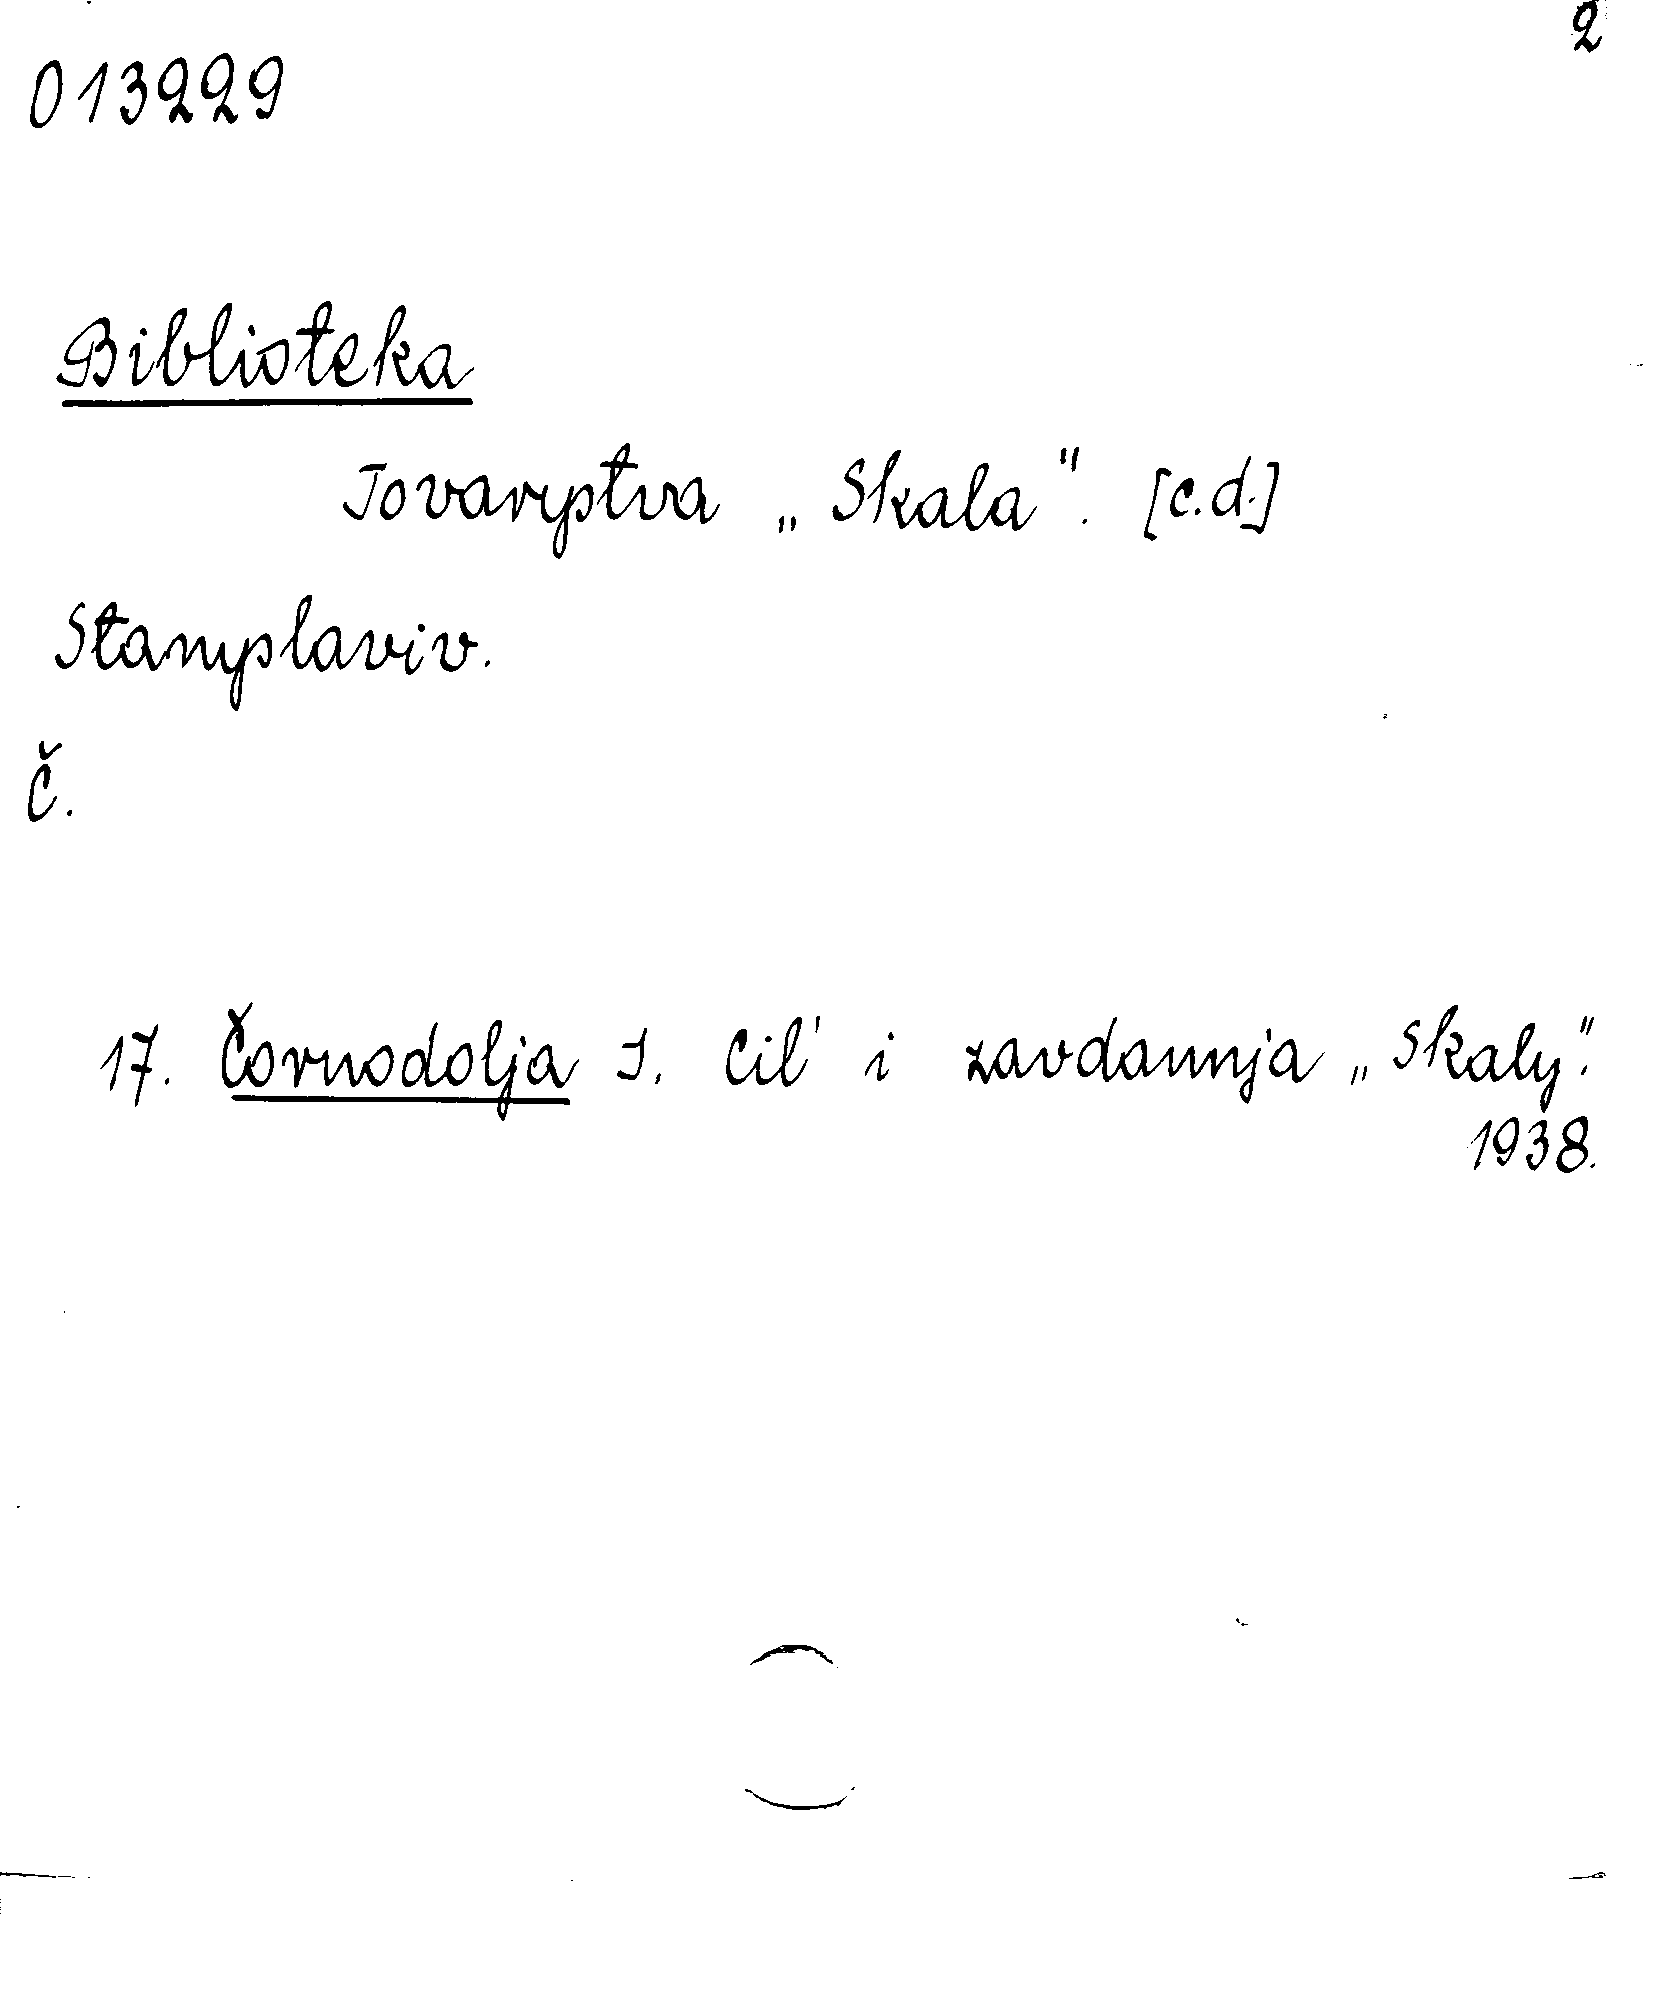 2
013229
Biblioteka
Tovarystva „Skala". [c.d.]
Stanyslaviv.
Č.
17. Čornodolja I. Cil' i zavdannja „Skaly".
1938.